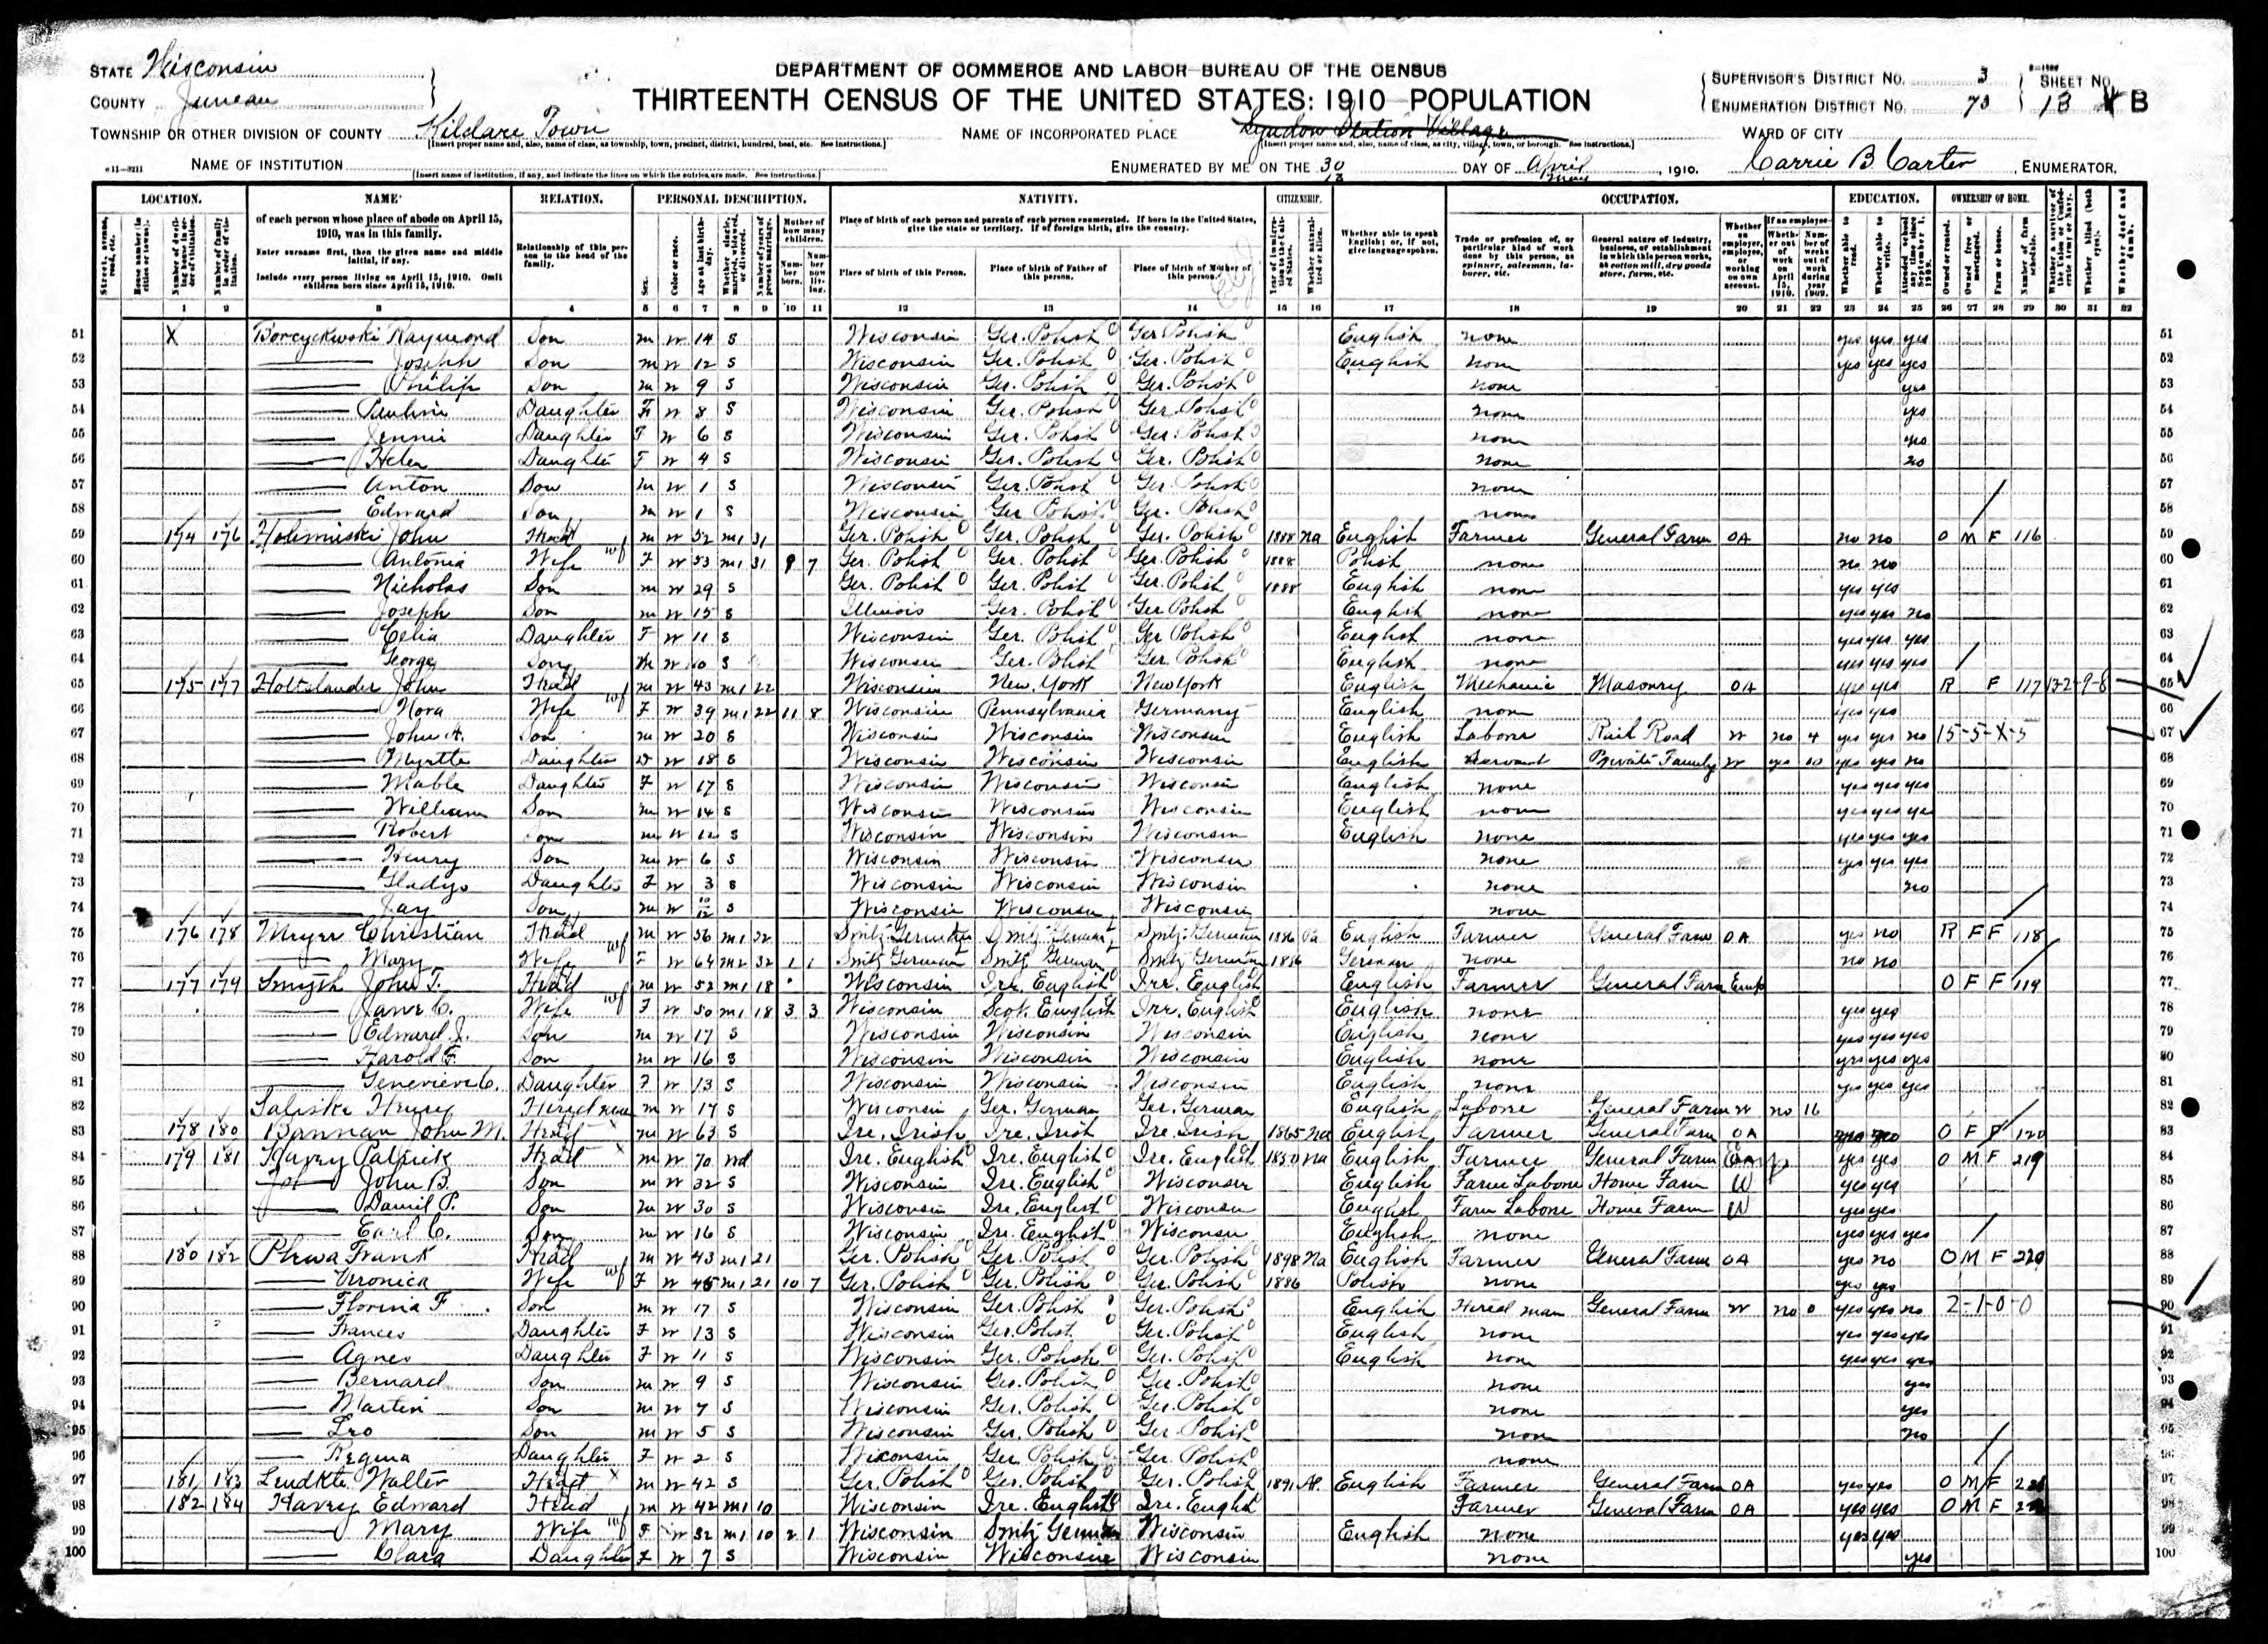 STATE Wisconsin
COUNTY Juneau
DEPARTMENT OF COMMERCE AND LABOR—BUREAU OF THE CENSUS
THIRTEENTH CENSUS OF THE UNITED STATES: 1910—POPULATION
SUPERVISOR'S DISTRICT No. 3
ENUMERATION DISTRICT No. 73
SHEET No. 13 B
TOWNSHIP OR OTHER DIVISION OF COUNTY Kildare Town
NAME OF INCORPORATED PLACE Lyndon Station Village
WARD OF CITY
NAME OF INSTITUTION
ENUMERATED BY ME ON THE 30 DAY OF April, 1910. Carrie B Carter, ENUMERATOR.
LOCATION. NAME RELATION. PERSONAL DESCRIPTION. NATIVITY. CITIZENSHIP. OCCUPATION. EDUCATION. OWNERSHIP OF HOME.
of each person whose place of abode on April 15, 1910, was in this family.
Enter surname first, then the given name and middle initial, if any.
Include every person living on April 15, 1910. Omit children born since April 15, 1910.
Relationship of this person to the head of the family.
Place of birth of each person and parents of each person enumerated. If born in the United States, give the state or territory. If of foreign birth, give the country.
Place of birth of this Person. Place of birth of Father of this person. Place of birth of Mother of this person.
51 X Raymond Son m w 14 s Wisconsin Ger. Polish Ger. Polish English none yes yes yes 51
52 Joseph Son m w 12 s Wisconsin Ger. Polish Ger. Polish English none yes yes yes 52
53 Philip Son m w 9 s Wisconsin Ger. Polish Ger. Polish none yes 53
54 Pauline Daughter F w 8 s Wisconsin Ger. Polish Ger. Polish none yes 54
55 Jennie Daughter F w 6 s Wisconsin Ger. Polish Ger. Polish none yes 55
56 Helen Daughter F w 4 s Wisconsin Ger. Polish Ger. Polish none no 56
57 Anton Son m w 1 s Wisconsin Ger. Polish Ger. Polish none 57
58 Edward Son m w 1 s Wisconsin Ger. Polish Ger. Polish none 58
59 174 176 John Head m w 52 m1 31 Ger. Polish Ger. Polish Ger. Polish 1888 na English Farmer General Farm OA no no O M F 116 59
60 Antonia Wife F w 53 m1 31 9 7 Ger. Polish Ger. Polish Ger. Polish 1888 Polish none no no 60
61 Nicholas Son m w 29 s Ger. Polish Ger. Polish Ger. Polish 1888 English none yes yes 61
62 Joseph Son m w 15 s Illinois Ger. Polish Ger. Polish English none yes yes no 62
63 Celia Daughter F w 11 s Wisconsin Ger. Polish Ger. Polish English none yes yes yes 63
64 George Son m w 10 s Wisconsin Ger. Polish Ger. Polish English none yes yes yes 64
65 175 177 Holtslander John Head m w 43 m1 22 Wisconsin New York New York English Mechanic Masonry OA yes yes R F 117 65
66 Nora Wife F w 39 m1 22 11 8 Wisconsin Pennsylvania Germany English none yes yes 66
67 John A. Son m w 20 s Wisconsin Wisconsin Wisconsin English Labore Rail Road W no 4 yes yes no 15-5-X-5 67
68 Myrtle Daughter 18 s Wisconsin Wisconsin Wisconsin English Servant Private Family W yes 10 yes yes no 68
69 Mable Daughter F w 17 s Wisconsin Wisconsin Wisconsin English none yes yes yes 69
70 William Son m w 14 s Wisconsin Wisconsin Wisconsin English none yes yes yes 70
71 Robert Son m w 12 s Wisconsin Wisconsin Wisconsin English none yes yes yes 71
72 Henry Son m w 6 s Wisconsin Wisconsin Wisconsin none yes yes yes 72
73 Gladys Daughter F w 3 s Wisconsin Wisconsin Wisconsin none no 73
74 Jay Son m w 10/12 s Wisconsin Wisconsin Wisconsin none 74
75 176 178 Meyer Christian Head m w 56 m1 32 Smitz German Smitz German Smitz German 1886 Pa English Farmer General Farm OA yes no R F F 118 75
76 Mary Wife F w 64 m2 32 1 1 Smitz German Smitz German Smitz German 1886 German none no no 76
77 177 179 Smyth John T. Head m w 52 m1 18 Wisconsin Ire. English Ire. English English Farmer General Farm Emp O F F 119 77
78 Jane C. Wife F w 50 m1 18 3 3 Wisconsin Scot. English Ire. English English none yes yes 78
79 Edward J. Son m w 17 s Wisconsin Wisconsin Wisconsin English none yes yes yes 79
80 Harold F. Son m w 16 s Wisconsin Wisconsin Wisconsin English none yes yes yes 80
81 Genevieve C. Daughter F w 13 s Wisconsin Wisconsin Wisconsin English none yes yes yes 81
82 Saliske Henry Hired man m w 17 s Wisconsin Ger. German Ger. German English Labore General Farm W no 16 82
83 178 180 Bannan John M. Head m w 63 s Ire. Irish Ire. Irish Ire. Irish 1865 na English Farmer General Farm OA yes yes O F F 120 83
84 179 181 Havey Patrick Head m w 70 wd Ire. English Ire. English Ire. English 1850 na English Farmer General Farm yes yes O M F 219 84
85 John B. Son m w 32 s Wisconsin Ire. English Wisconsin English Farm Labore Home Farm W yes yes 85
86 Daniel P. Son m w 30 s Wisconsin Ire. English Wisconsin English Farm Labore Home Farm W yes yes 86
87 Earl C. Son m w 16 s Wisconsin Ire. English Wisconsin English none yes yes yes 87
88 180 182 Plewa Frank Head m w 43 m1 21 Ger. Polish Ger. Polish Ger. Polish 1898 Na English Farmer General Farm OA yes no O M F 220 88
89 Veronica Wife F w 45 m1 21 10 7 Ger. Polish Ger. Polish Ger. Polish 1886 Polish none yes yes 89
90 Florina F. Son m w 17 s Wisconsin Ger. Polish Ger. Polish English Hired man General Farm W no 0 yes yes no 2-1-0-0 90
91 Frances Daughter F w 13 s Wisconsin Ger. Polish Ger. Polish English none yes yes yes 91
92 Agnes Daughter F w 11 s Wisconsin Ger. Polish Ger. Polish English none yes yes yes 92
93 Bernard Son m w 9 s Wisconsin Ger. Polish Ger. Polish none yes 93
94 Martin Son m w 7 s Wisconsin Ger. Polish Ger. Polish none yes 94
95 Leo Son m w 5 s Wisconsin Ger. Polish Ger. Polish none no 95
96 Regina Daughter F w 2 s Wisconsin Ger. Polish Ger. Polish none 96
97 181 183 Walter Head m w 42 s Ger. Polish Ger. Polish Ger. Polish 1891 Al. English Farmer General Farm OA yes yes O M F 97
98 182 184 Havey Edward Head m w 42 m1 10 Wisconsin Ire. English Ire. English Farmer General Farm OA yes yes O M F 98
99 Mary Wife F w 32 m1 10 2 1 Wisconsin Smitz German Wisconsin English none yes yes 99
100 Clara Daughter F w 7 s Wisconsin Wisconsin Wisconsin none yes 100